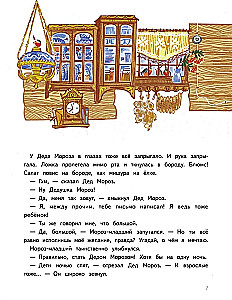 У Деда Мороза в глазах тоже всё запрыгало. И рука запры-
гала. Ложка пролетела мимо рта и ткнулась в бороду. Блюмс!
Салат повис на бороде, как мишура на ёлке.
— Гм, — сказал Дед Мороз.
— Ну Дедушка Мороз!
— Да, меня так зовут, — хмыкнул Дед Мороз.
— Я, между прочим, тебе письмо написал! Я ведь тоже
ребёнок!
— Ты же говорил мне, что большой.
— Да, большой, — Мороз-младший запутался. — Но ты всё
равно исполнишь моё желание, правда? Угадай, о чём я мечтаю.
Мороз-младший таинственно улыбнулся.
— Правильно, стать Дедом Морозом! Хотя бы на одну ночь.
— Дети ночью спят, — отрезал Дед Мороз. — И взрослые
тоже... — Он широко зевнул.
7